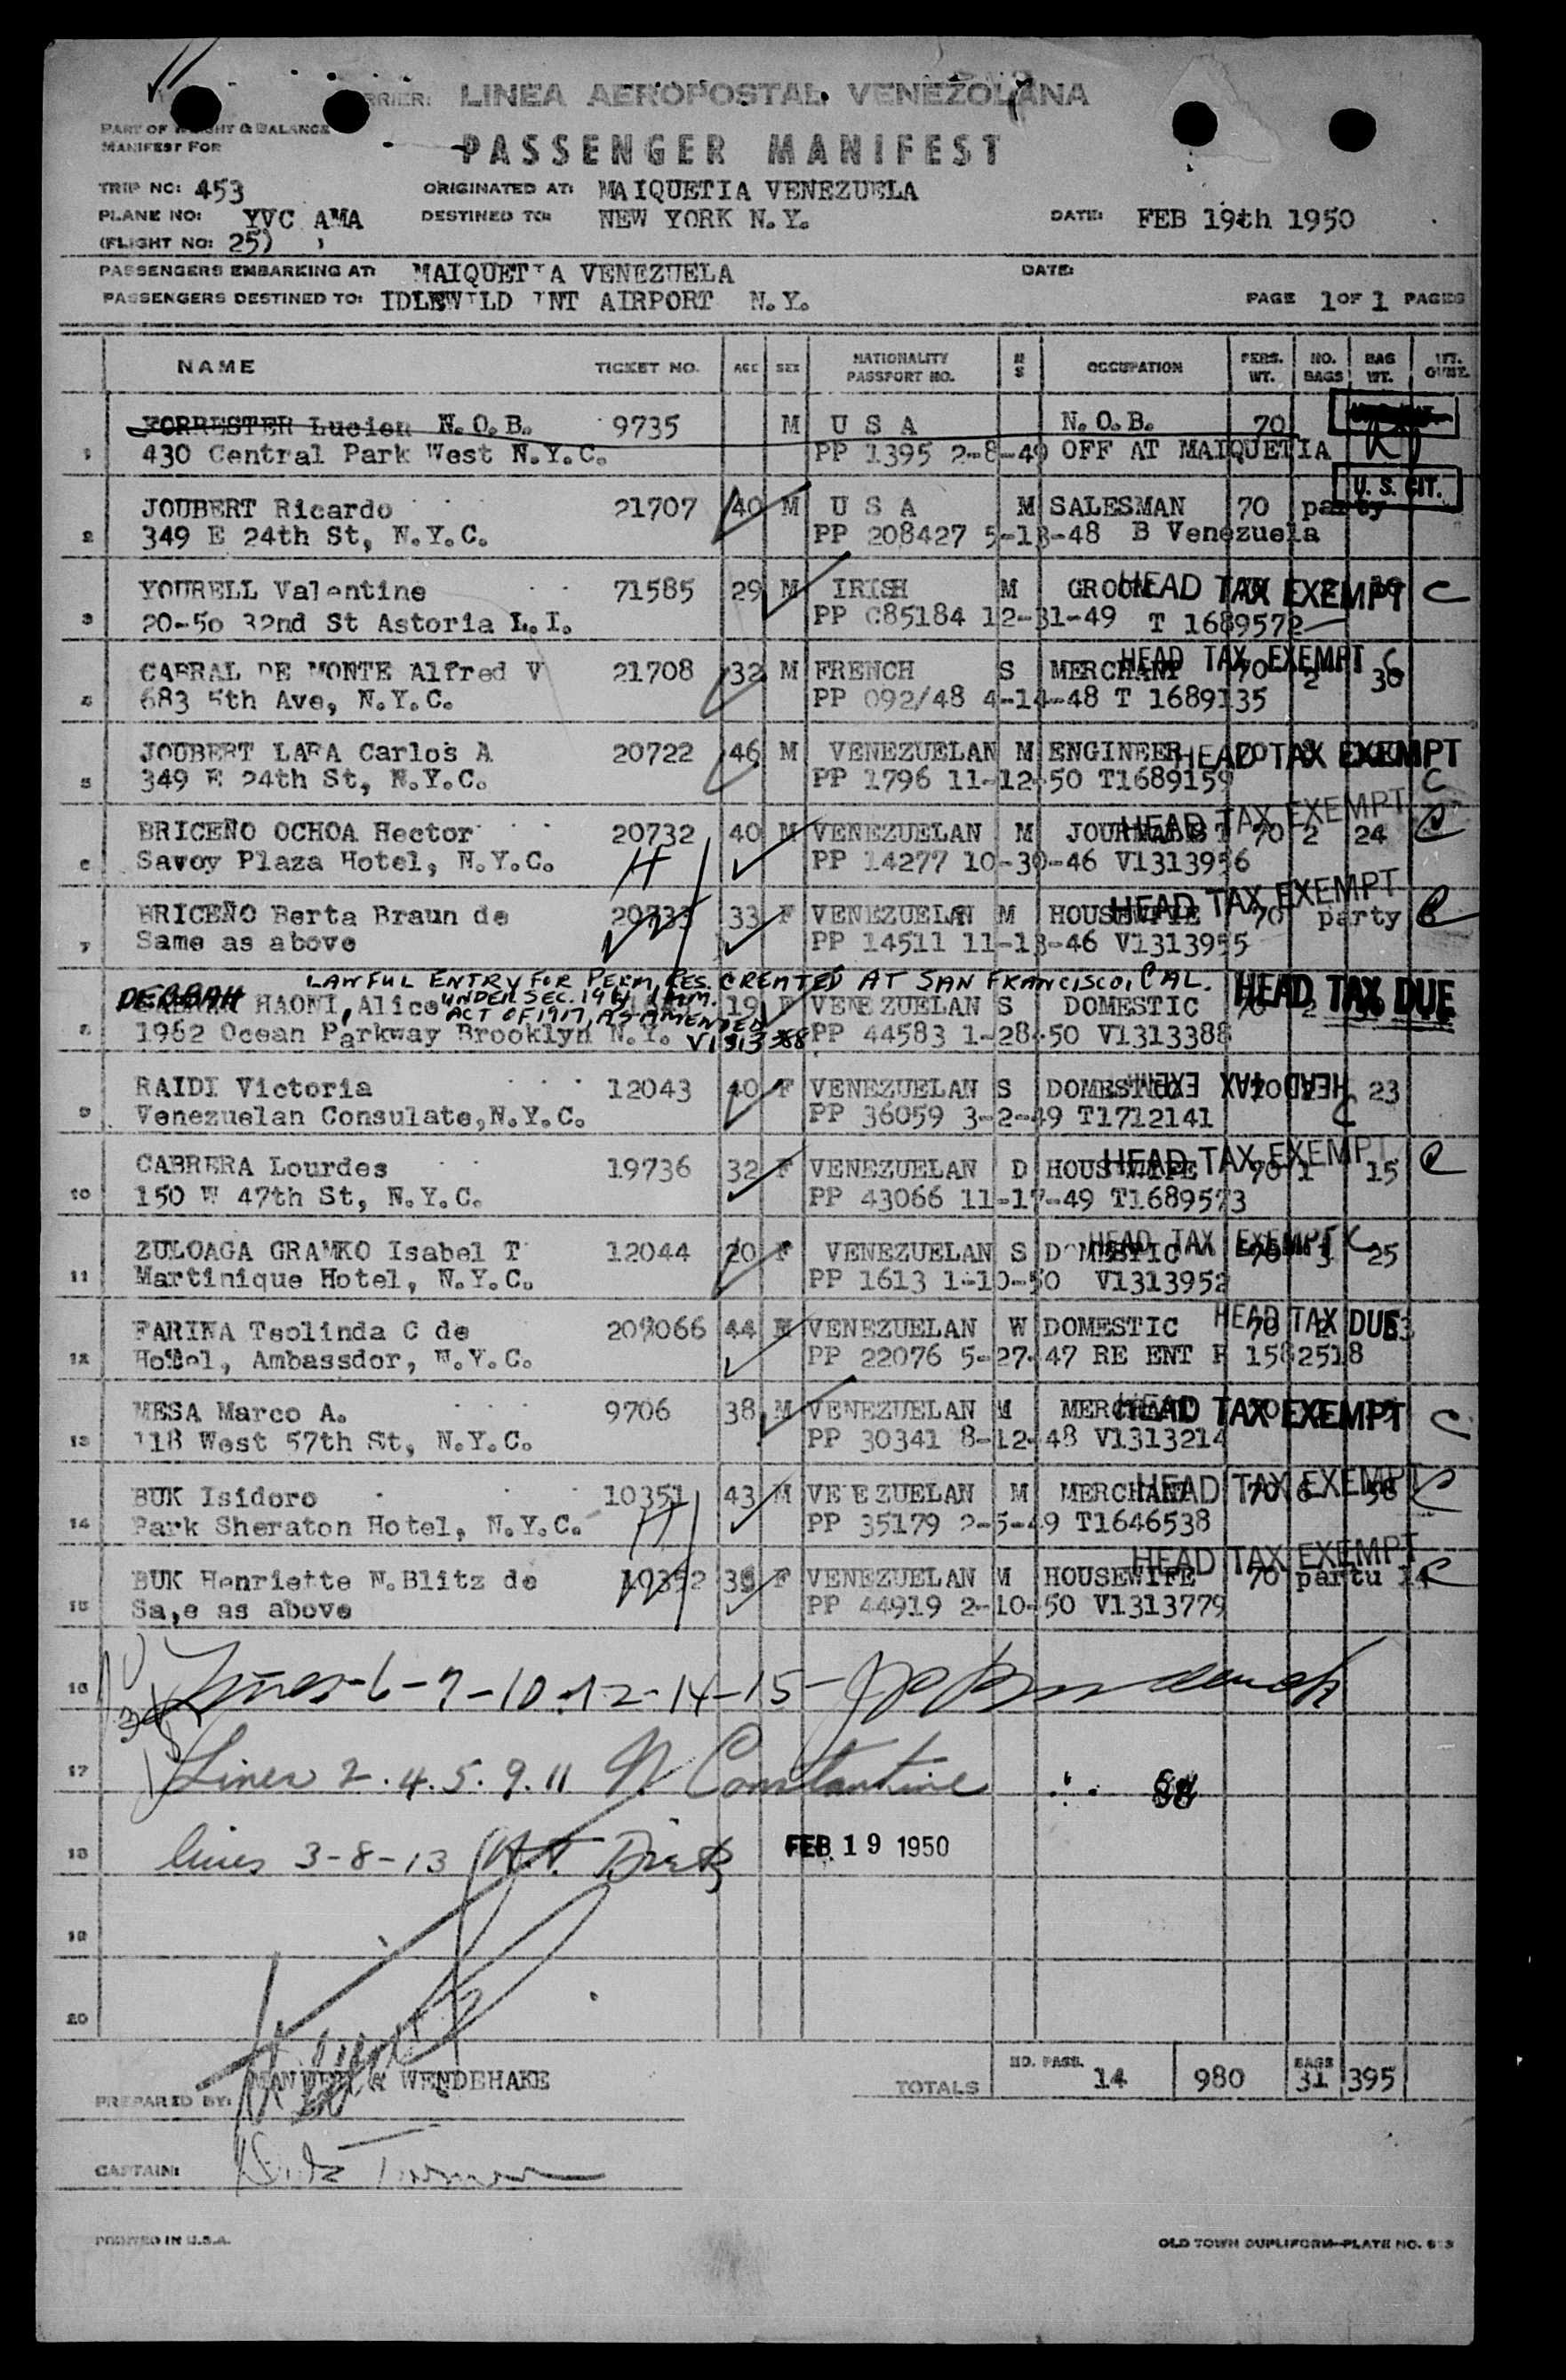 CARRIER: LINEA AEROPOSTAL VENEZOLANA
PART OF WEIGHT & BALANCE
MANIFEST FOR
PASSENGER MANIFEST
TRIP NO: 453 ORIGINATED AT: MAIQUETIA VENEZUELA
PLANE NO: YVC AMA DESTINED TO: NEW YORK N.Y. DATE: FEB 19th 1950
(FLIGHT NO: 25)
PASSENGERS EMBARKING AT: MAIQUETIA VENEZUELA DATE:
PASSENGERS DESTINED TO: IDLEWILD INT AIRPORT N.Y. PAGE 1 OF 1 PAGES
NAME TICKET NO. AGE SEX NATIONALITY PASSPORT NO. M S OCCUPATION PERS. WT. NO. BAGS BAG WT.
FORRESTER Lucien N.O.B. 9735 M U S A N.O.B. 70
1 430 Central Park West N.Y.C. PP 1395 2-8-49 OFF AT MAIQUETIA
U. S. CIT.
JOUBERT Ricardo 21707 40 M U S A M SALESMAN 70 party
2 349 E 24th St, N.Y.C. PP 208427 5-13-48 B Venezuela
YOURELL Valentine 71585 29 M IRISH M GROOM HEAD TAX EXEMPT C
3 20-50 32nd St Astoria L.I. PP C85184 12-31-49 T 1689572
CABRAL DE MONTE Alfred V 21708 32 M FRENCH S MERCHANT HEAD TAX EXEMPT C 70 2 30
4 683 5th Ave, N.Y.C. PP 092/48 4-14-48 T 1689135
JOUBERT LARA Carlos A 20722 46 M VENEZUELAN M ENGINEER HEAD TAX EXEMPT
5 349 E 24th St, N.Y.C. PP 1796 11-12-50 T1689159 C
BRICEÑO OCHOA Hector 20732 40 M VENEZUELAN M JOURNALIST HEAD TAX EXEMPT 70 2 24 C
6 Savoy Plaza Hotel, N.Y.C. PP 14277 10-30-46 V1313956
BRICEÑO Berta Braun de 20733 33 F VENEZUELAN M HOUSEWIFE HEAD TAX EXEMPT 70 party C
7 Same as above PP 14511 11-13-46 V1313955
LAWFUL ENTRY FOR PERM. RES. CREATED AT SAN FRANCISCO, CAL.
DEBBAH HAONI, Alice UNDER SEC. 19 19 F VENEZUELAN S DOMESTIC 70 HEAD TAX DUE
ACT OF 1917, AS AMENDED
8 1962 Ocean Parkway Brooklyn N.Y. V1313388 PP 44583 1-28-50 V1313388
RAIDI Victoria 12043 40 F VENEZUELAN S DOMESTIC HEAD TAX EXEMPT 23
9 Venezuelan Consulate, N.Y.C. PP 36059 3-2-49 T1712141 C
CABRERA Lourdes 19736 32 F VENEZUELAN D HOUSEWIFE HEAD TAX EXEMPT 70 1 15 C
10 150 W 47th St, N.Y.C. PP 43066 11-17-49 T1689573
ZULOAGA GRAMKO Isabel T 12044 20 F VENEZUELAN S DOMESTIC HEAD TAX EXEMPT C 70 3 25
11 Martinique Hotel, N.Y.C. PP 1613 1-10-50 V1313952
FARINA Teolinda C de 209066 44 VENEZUELAN W DOMESTIC 70 HEAD TAX DUE
12 Hotel, Ambassdor, N.Y.C. PP 22076 5-27-47 RE ENT P 1582518
MESA Marco A. 9706 38 M VENEZUELAN M MERCHANT HEAD TAX EXEMPT C
13 118 West 57th St, N.Y.C. PP 30341 8-12-48 V1313214
BUK Isidoro 10351 43 M VENEZUELAN M MERCHANT HEAD TAX EXEMPT 70 6 58 C
14 Park Sheraton Hotel, N.Y.C. PP 35179 2-5-49 T1646538
BUK Henriette N.Blitz de 10352 F VENEZUELAN M HOUSEWIFE HEAD TAX EXEMPT 70 partu 14 C
15 Sa,e as above PP 44919 2-10-50 V1313779
16 Lines-6-7-10-12-14-15-
17 Lines 2.4.5.9.11 N Constantine
18 lines 3-8-13 FEB 19 1950
19
20
PREPARED BY: WENDEHAKE TOTALS NO. PASS. 14 980 BAGS 31 395
CAPTAIN:
PRINTED IN U.S.A. OLD TOWN DUPLIFORM-PLATE NO.